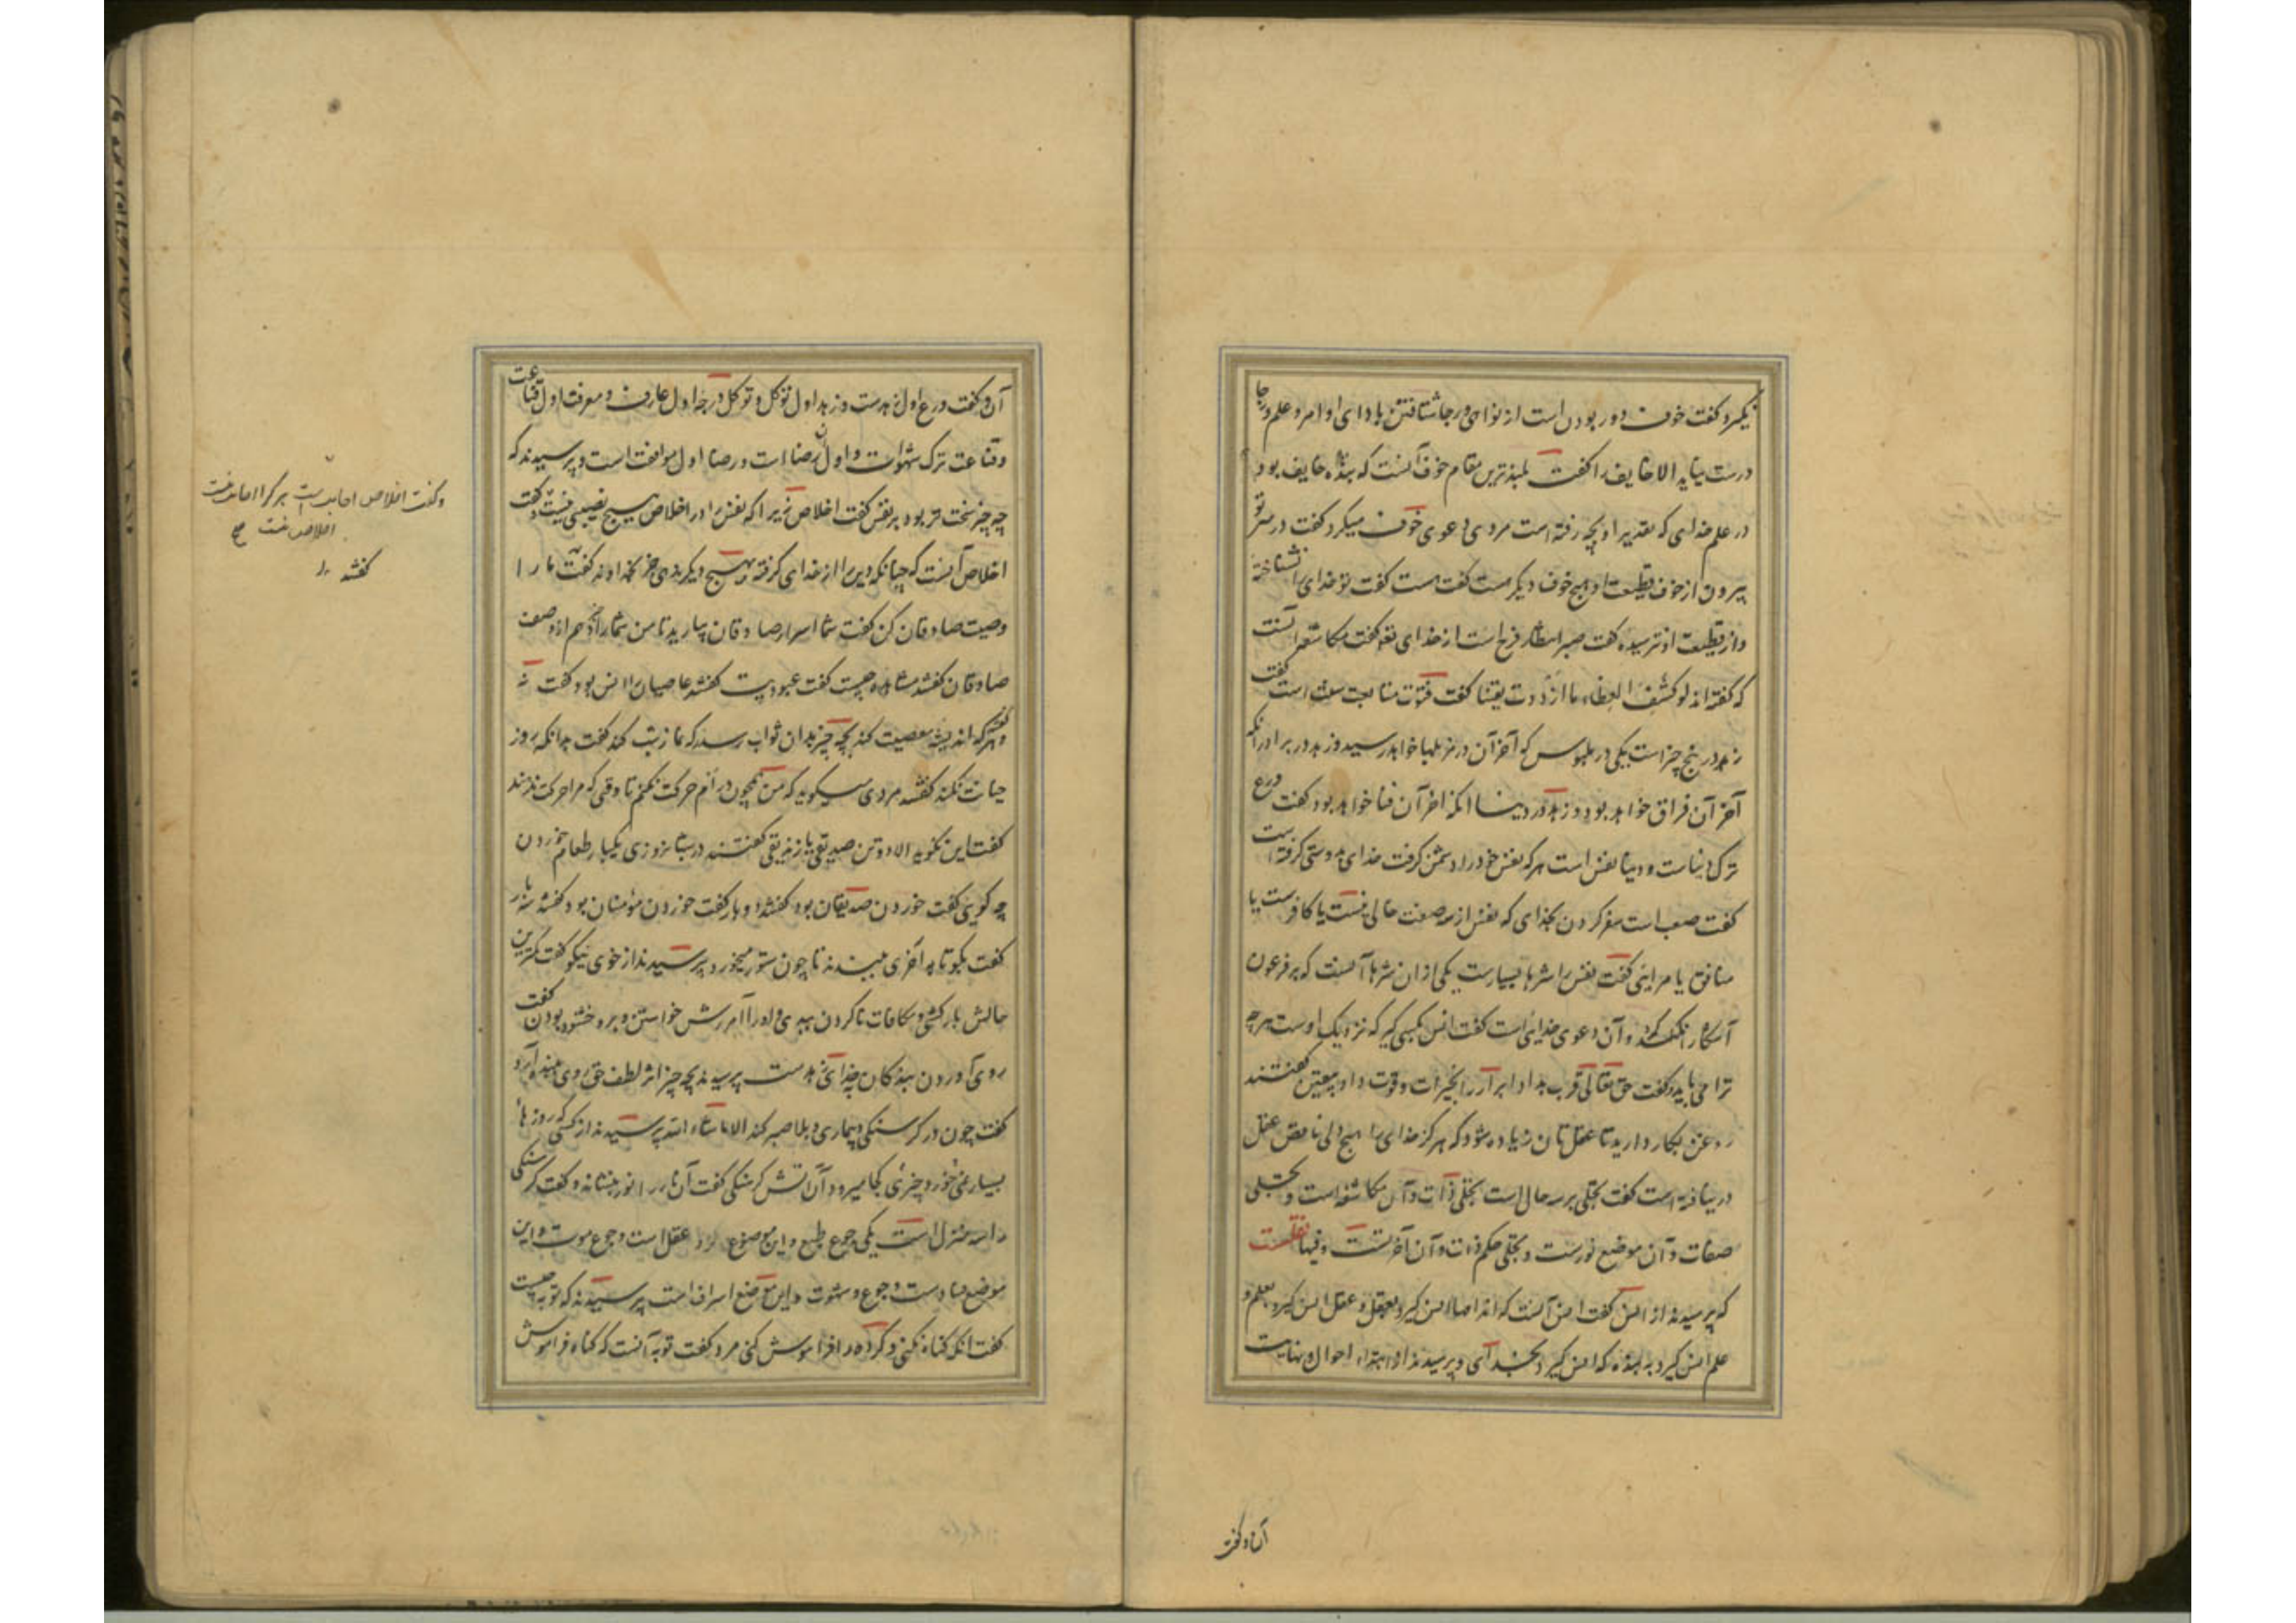 نگیرد و گفت خوف دور بودن است از نواهی و رجا شتافتن با دای اوامر و علم رجا
درست نیاید الا خایف را گفت بلندترین مقام خوف آنست که بنده خایف بود
در علم خدای که تقدیر او بچه رفته است مردی دعوی خوف میکرد گفت در سر تو
بیرون از خوف قطیعت او هیچ خوف دیگر هست گفت هست گفت تو خدای را نشناخته
و از قطیعت او نترسیده گفت صبر انتظار فرج است از خدای تعه گفت مکاشفه آنست
که گفته اند لو کشف الغطاء ما ازددت یقینا گفت فتوت متابعت سنت است گفت
زهد در پنج چیز است یکی در ملبوس که آخر آن در مزبلها خواهد رسید و زهد در برادرانکه
آخر آن فراق خواهد بود و زهد در دنیا انکه اخر آن فنا خواهد بود گفت ورع
ترک دنیاست و دنیا نفس است هر که نفس خود را دشمن گرفت خدای بدوستی گرفته است
گفت صعب است سفر کردن بخدای که نفس از سه صفت خالی نیست یا کافرست یا
منافق یا مرایی گفت نفس را شرها بسیارست یکی از ان شرها آنست که بر فرعون
آشکارا نکند و آن دعوی خدایی است گفت انس بکسی گیر که نزدیک اوست هر چه
ترا می باید و گفت حق تعالی قرب بداد ابرار را بخیرات و قوت داد بیقین گفتند
روغن بکار دارید تا عقل تان زیاده شود که هرگز خدای را هیچ ولی ناقص عقل
در نیافته است گفت تجلی بر سه حال است تجلی ذات و آن مکاشفه است و تجلی
صفات و آن موضع نورست و تجلی حکم ذات و آن آخرتست و فیها نقلست
که پرسیدند از انس گفت انس آنست که اندامها انس گیرد بعقل و عقل انس گیرد بعلم و
علم انس گیرد به بنده که انس گیرد بخدای و پرسیدند از ابتداء احوال و نهایت
آن و گفت
آن و گفت ورع اول زهدست و زهد اول توکل و توکل درجه اول عارف و معرفت اول قناعت
و قناعت ترک شهوات و اول آن رضا است و رضا اول موافقت است و پرسیدند که
چه چیز سخت تر بود بر نفس گفت اخلاص زیرا که نفس را در اخلاص هیچ نصیبی نیست و گفت
اخلاص آنست که چنانکه دین را از خدای گرفته بهیچ دیگر ندهی جز بخداوند گفت ما را
وصیت صادقان کن گفت شما اسرار صادقان بیارید تا من شما را خبر دهم از وصف
صادقان گفتند مشاهده چیست گفت عبودیت گفتند عاصیان را انس بود گفت نه
و هر که اندیشه معصیت کند گفتند بچه چیز بدان ثواب رسد که نماز شب کند گفت بدانکه بروز
جنایت نکند گفتند مردی میگوید که من همچون درم حرکت نکنم تا وقتی که مرا حرکت ندهند
گفت این نگوید الا دو تن صدیقی یا زندیقی گفتند در شبانروزی یکبار طعام خوردن
چه گویی گفت خوردن صدیقان بود گفتند دو بار گفت خوردن مومنان بود گفتند سه بار
گفت بگو تا به آخری ببندند تا چون ستور میخورد پرسیدند از خوی نیکو گفت کمترین
حالش بارکشی و مکافات ناکردن بدی و او را آمرزش خواستن و برو خشنود بودن گفت
روی آوردن بندگان بخدای زهدست پرسیدند بچه چیز اثر لطف حق روی ببنده آرد
گفت چون در گرسنگی و بیماری و بلا صبر کند الا ماشاء الله پرسیدند از کسی که روزها
بسیار نمی خورد چیزی کجا میرود آن آتش گرسنگی گفت آن نار را نور بنشاند و گفت گرسنگی
را سه منزل است یکی جوع طبع و این موضع عقل است و جوع موت و این
موضع فسادست و جوع شهوت و این موضع اسراف است پرسیدند که توبه چیست
گفت انکه گناه نکنی و کرده را فراموش کنی مرد گفت توبه آنست که گناه فراموش
و گفت اخلاص اجابت است هر کرا اجابت نیست
اخلاص نیست صح
گفتند